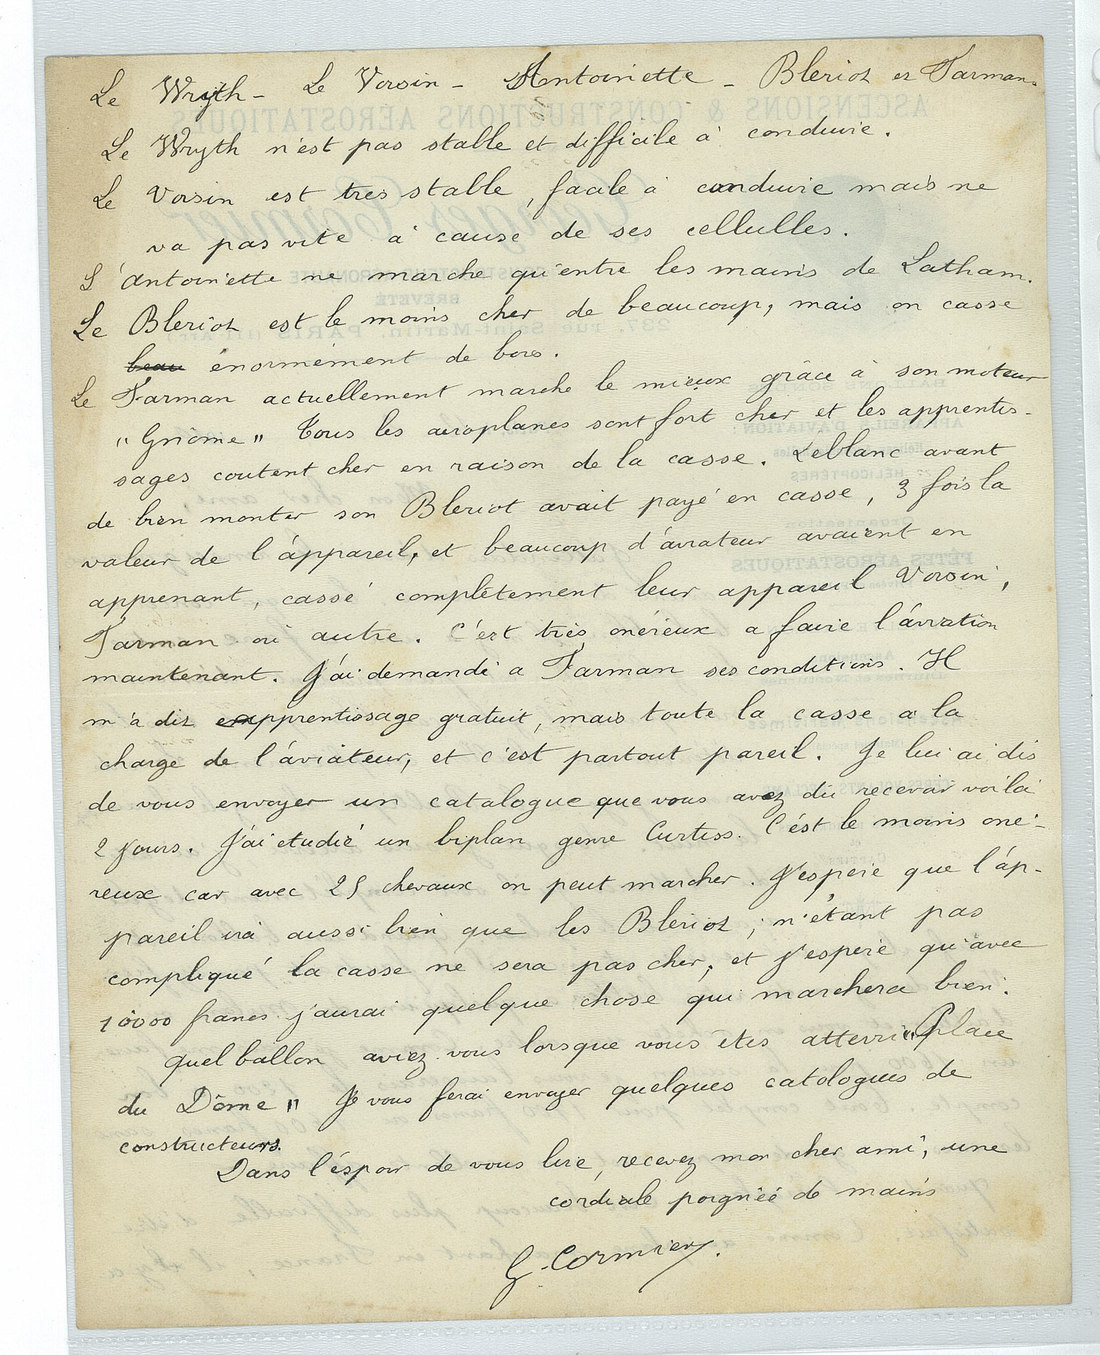 Le Wryth - Le Voisin - Antoinette - Bleriot et Farman.
Le Wryth n'est pas stable et difficile à conduire.
Le Voisin est tres stable, facile à conduire mais ne
va pas vite à cause de ses cellulles.
L'Antoinette ne marche qu'entre les mains de Latham.
Le Bleriot est le moins cher de beaucoup, mais on casse
beau énormément de bois.
Le Farman actuellement marche le mieux grâce à son moteur
"Gnôme" Tous les aéroplanes sont fort cher et les apprentis-
sages coutent cher en raison de la casse. Leblanc avant
de bien monter son Bleriot avait payé en casse, 3 fois la
valeur de l'áppareil, et beaucoup d'áviateur avaient en
apprenant, cassé complètement leur appareil Voisin,
Farman ou autre. C'est très onéreux a faire l'áviation
maintenant. J'ai demandé a Farman ses conditions. Il
m'a dit apprentissage gratuit, mais toute la casse a la
charge de l'áviateur, et c'est partout pareil. Je lui ai dis
de vous envoyer un catalogue que vous avez dû recevoir voilà
2 jours. J'ai etudié un biplan genre Curtiss. C'ést le moins oné-
reux car avec 25 chevaux on peut marcher. J'espère que l'áp-
pareil ira aussi bien que les Bleriot ; n'étant pas
compliqué la casse ne sera pas cher, et j'espère qu'avec
10000 francs j'aurai quelque chose qui marchera bien.
Quel ballon aviez-vous lorsque vous êtes atterri "Place
du Dôme" Je vous ferai envoyer quelques catologues de
constructeurs.
Dans l'éspoir de vous lire, recevez mon cher ami, une
cordiale poignéé de mains
G. Cormier.
ASCENSIONS & CONSTRUCTIONS AÉROSTATIQUES
Georges Cormier
BREVETÉ
237, rue Saint-Martin, PARIS